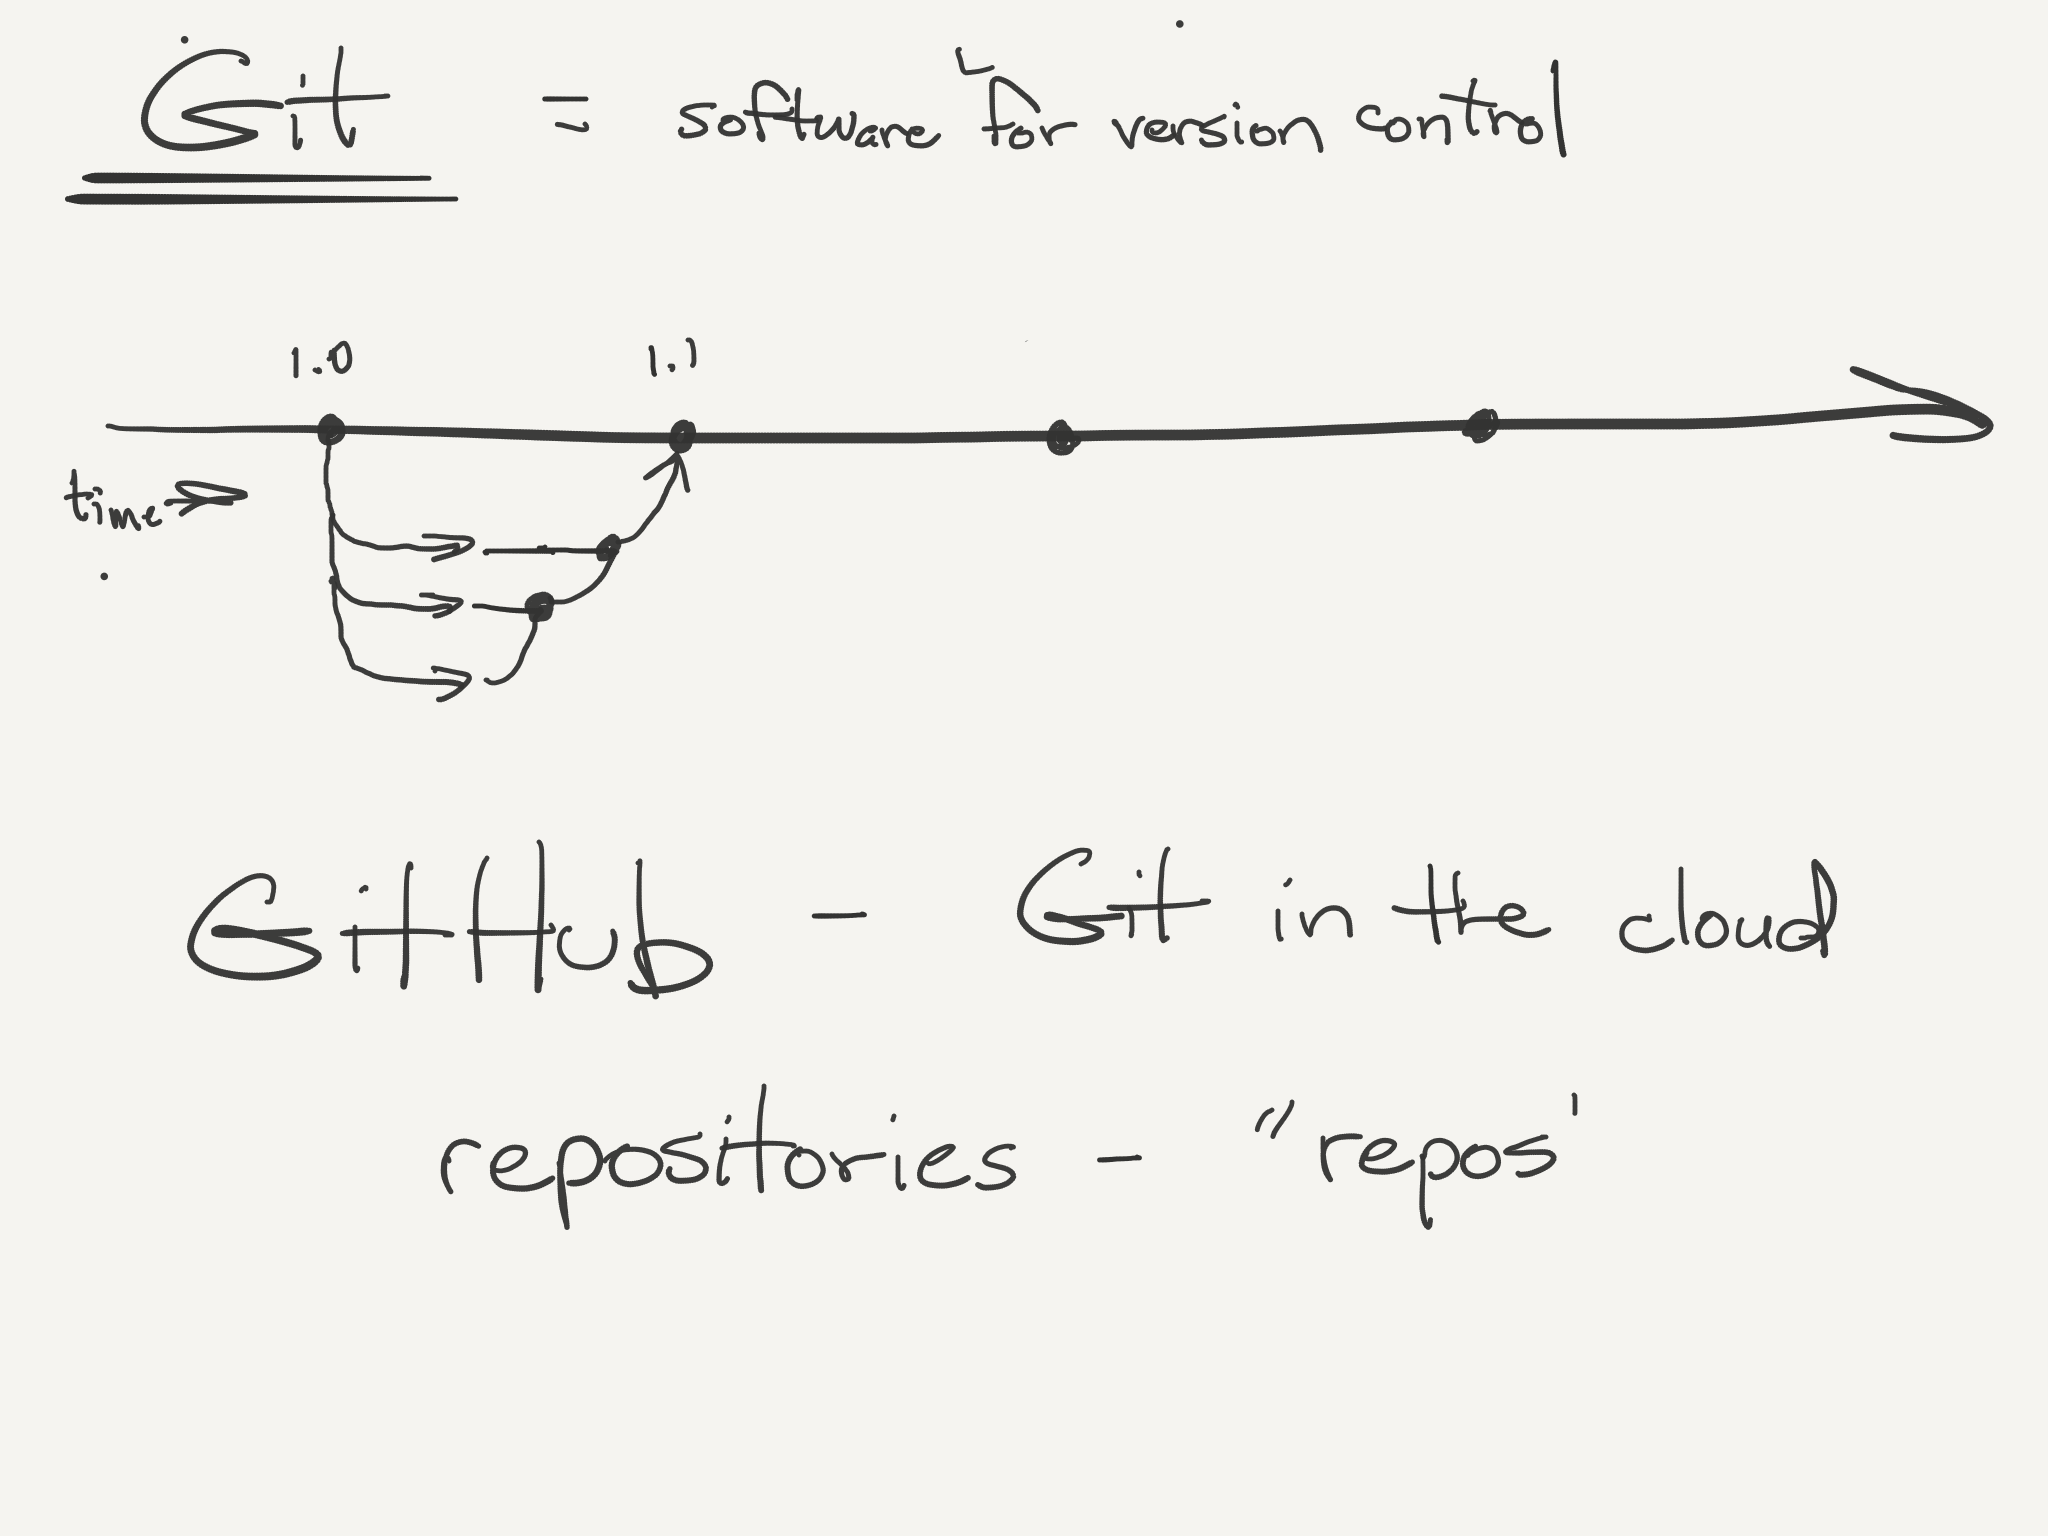 Git = software for version control
1.0 1.1
time
GitHub - Git in the cloud
repositories - "repos'